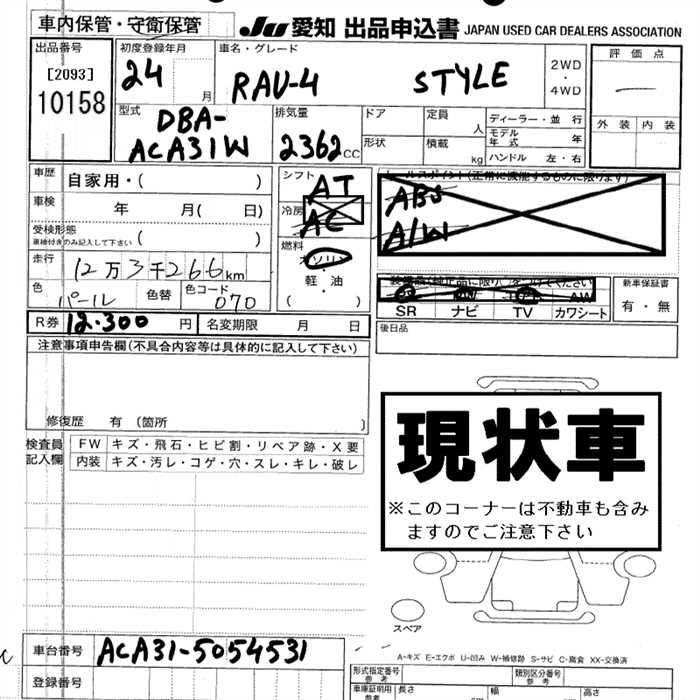 車内保管・守衛保管
JU 愛知 出品申込書 JAPAN USED CAR DEALERS ASSOCIATION
出品番号
[2093]
10158
初度登録年月
24 月
車名・グレード
RAV-4 STYLE
2WD・4WD
評価点
外装 内装
型式
DBA-
ACA31W
排気量
2362 CC
ドア
形状
定員 人
積載 kg
ディーラー・並行
モデル年式 年
ハンドル 左・右
車歴 自家用・( )
車検 年 月( 日)
受検形態
車検付きのみ記入して下さい ( )
走行 12万3千266km
色 パール 色替 色コード 070
R券 12.300 円 名変期限 月 日
シフト AT
冷房 AC
燃料
ガソリン・軽油
( )
セールスポイント(正常に機能するものに限ります)
ABS
A/W
SR ナビ TV カワシート
AW
新車保証書
有・無
後日品
注意事項申告欄(不具合内容等は具体的に記入して下さい)
修復歴 有 〔箇所 〕
検査員記入欄
FW キズ・飛石・ヒビ割・リペア跡・X要
内装 キズ・汚レ・コゲ・穴・スレ・キレ・破レ
現状車
※このコーナーは不動車も含み
ますのでご注意下さい
スペア
A-キズ E-エクボ U-凹み W-補修跡 S-サビ C-腐食 XX-交換済
車台番号 ACA31-5054531
登録番号
形式指定番号
参考
類別区分番号
参考
車庫証明用
参考
長さ 幅 高さ